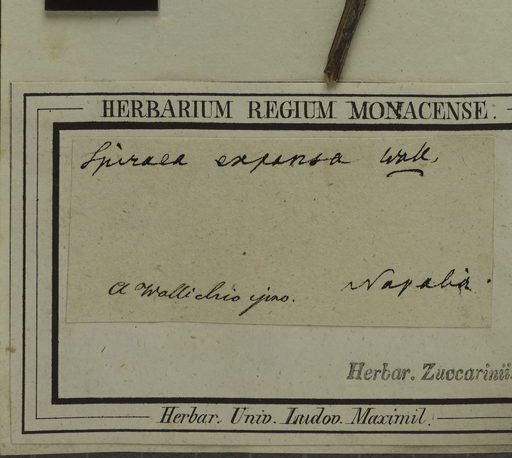 HERBARIUM REGIUM MONACENSE.
Spiraea expansa Wall.
Napalia.
A Wallichio ipso.
Herbar. Zuccarinii.
Herbar. Univ. Ludov. Maximil.